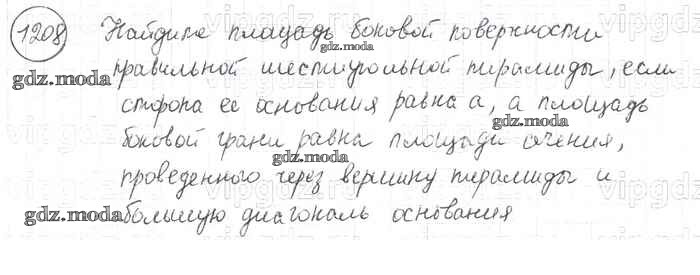 1208 Найдите площадь боковой поверхности
правильной шестиугольной пирамиды, если
сторона её основания равна а, а площадь
боковой грани равна площади сечения,
проведенного через вершину пирамиды и
большую диагональ основания
gdz.moda
gdz.moda
gdz.moda
gdz.moda
gdz.moda
gdz.moda
gdz.moda
vipgdz
vipgdz
vipgdz